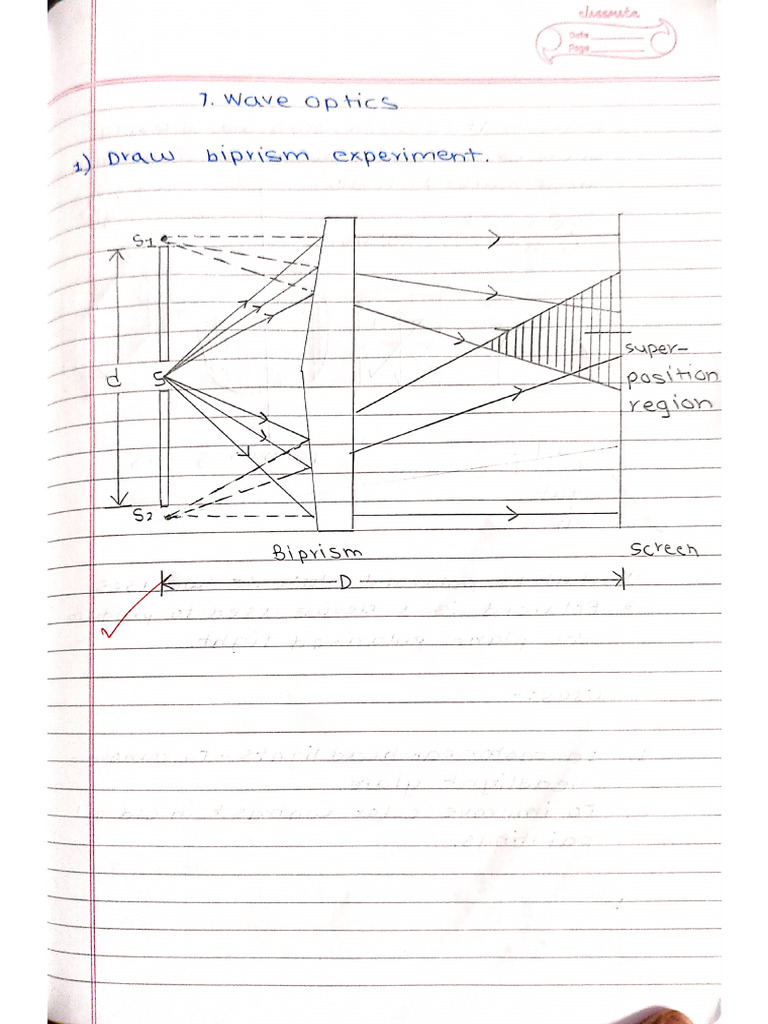 classmate
Date
Page
7. Wave optics
1) Draw biprism experiment.
S1
d
S
super-
position
region
S2
Biprism
screen
D